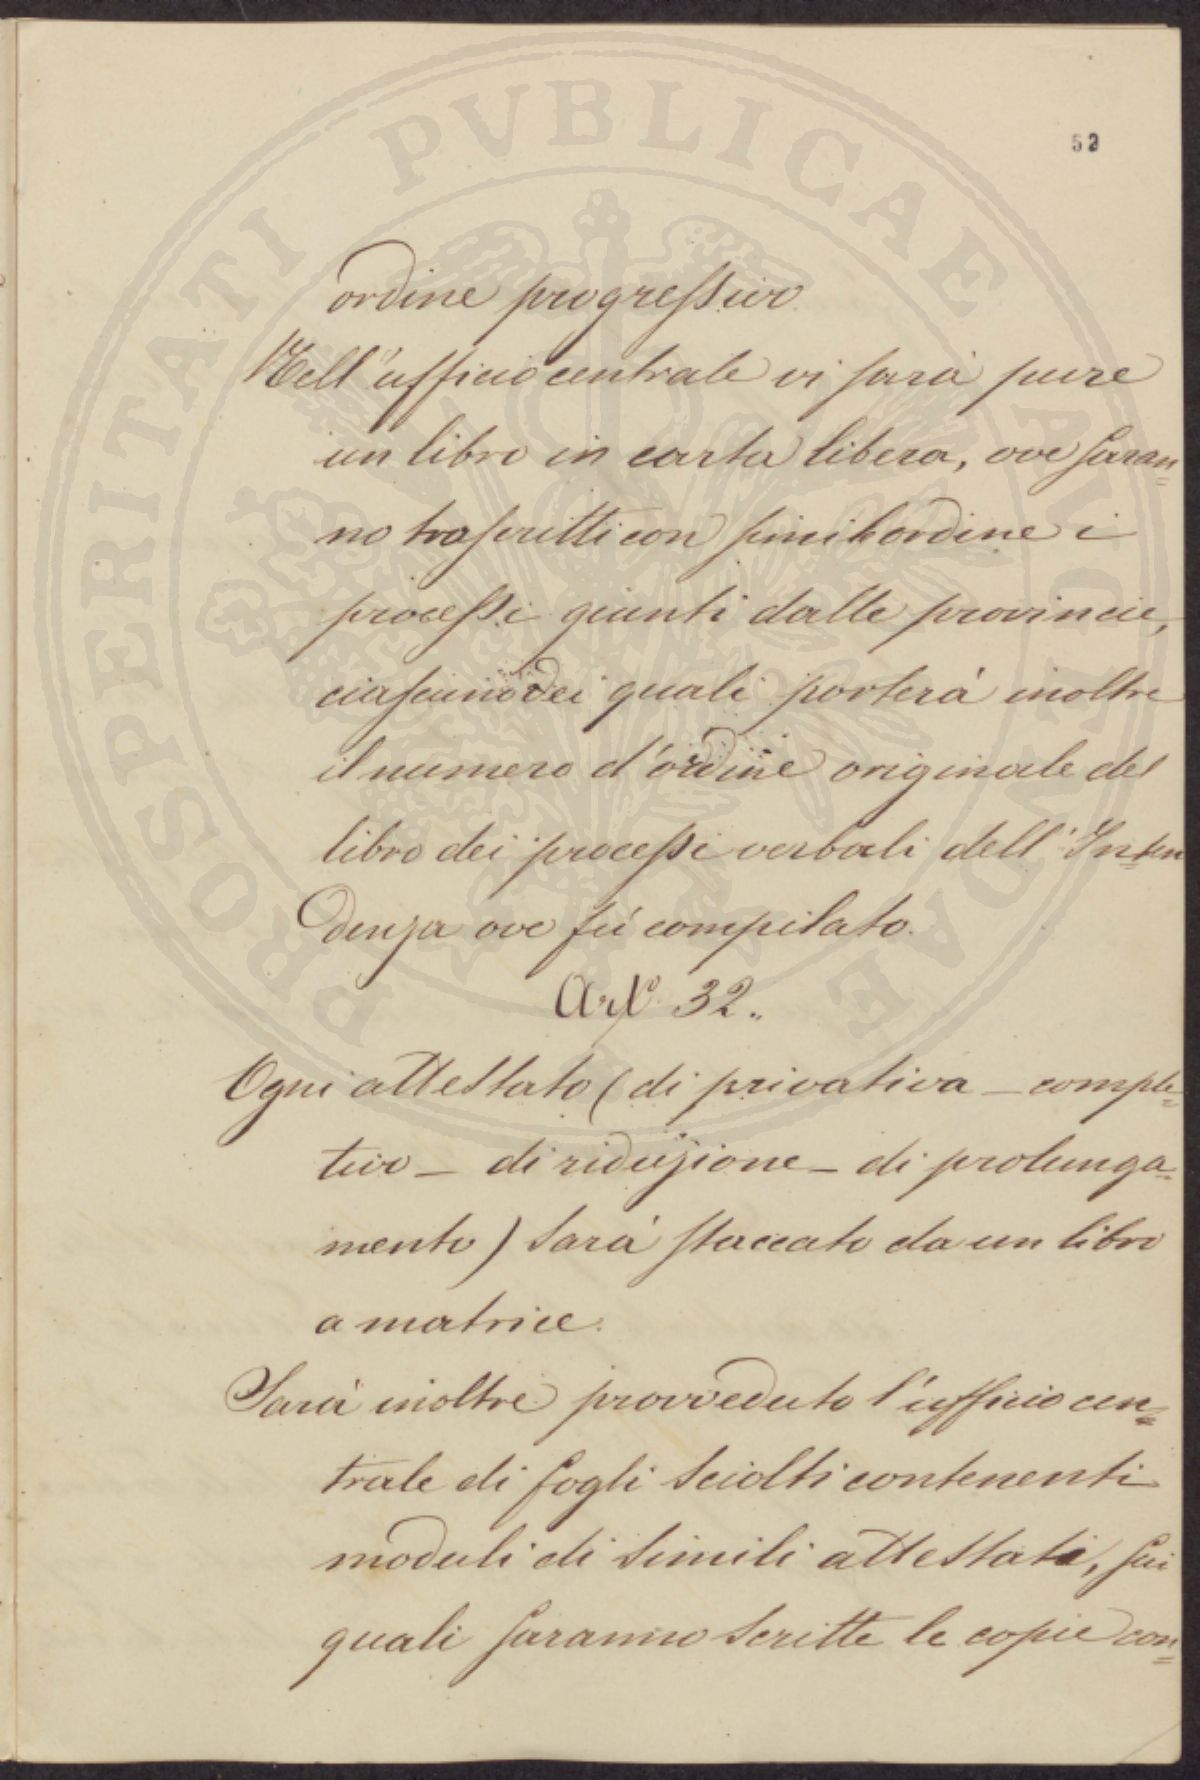 PROSPERITATI PVBLICAE AVGENDAE
52
ordine progressivo.
Nell'ufficio centrale vi sarà pure
un libro in carta libera, ove saran=
no trascritti con simil ordine i
processi giunti dalle provincie,
ciascuno dei quali porterà inoltre
il numero d'ordine originale del
libro dei processi verbali dell'Inten=
denza ove fù compilato.
Art.º 32..
Ogni attestato (di privativa – comple=
tivo – di riduzione – di prolunga=
mento) sarà staccato da un libro
a matrice.
Sarà inoltre provveduto l'ufficio cen=
trale di fogli sciolti contenenti
moduli di simili attestati, sui
quali saranno scritte le copie con=